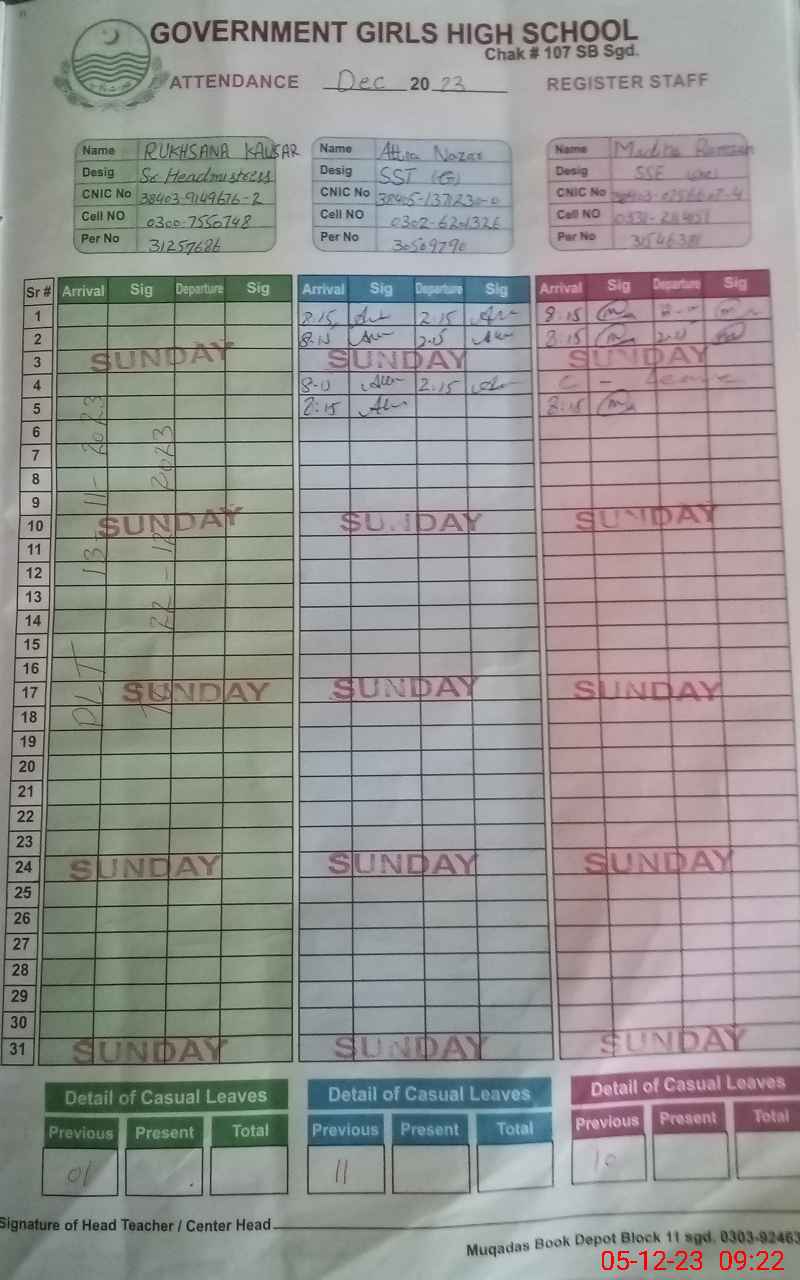 GOVERNMENT GIRLS HIGH SCHOOL
Chak # 107 SB Sgd.
ATTENDANCE Dec 2023 REGISTER STAFF
Name RUKHSANA KAUSAR
Desig Sr Headmistress
CNIC No 38403-9149676-2
Cell NO 0300-7550748
Per No 31257686
Name Attia Nazar
Desig SST (G)
CNIC No
Cell NO
Per No 30509790
Name
Desig SSE
CNIC No
Cell NO
Per No
Sr # Arrival Sig Departure Sig Arrival Sig Departure Sig Arrival Sig Departure Sig
1 8:15 2:15 8:15
2 8:15 2:15 8:15
3 SUNDAY SUNDAY SUNDAY
4 2:15 C - leave
5 8:15 8:15
6
7
8
9
10 SUNDAY SUNDAY SUNDAY
11
12
13
14
15
16
17 SUNDAY SUNDAY SUNDAY
18
19
20
21
22
23
24 SUNDAY SUNDAY SUNDAY
25
26
27
28
29
30
31 SUNDAY SUNDAY SUNDAY
DLT 13-11-2023
22-12-2023
Detail of Casual Leaves Detail of Casual Leaves Detail of Casual Leaves
Previous Present Total Previous Present Total Previous Present Total
01 11 10
Signature of Head Teacher / Center Head
Muqadas Book Depot Block 11 sgd. 0303-92463
05-12-23 09:22